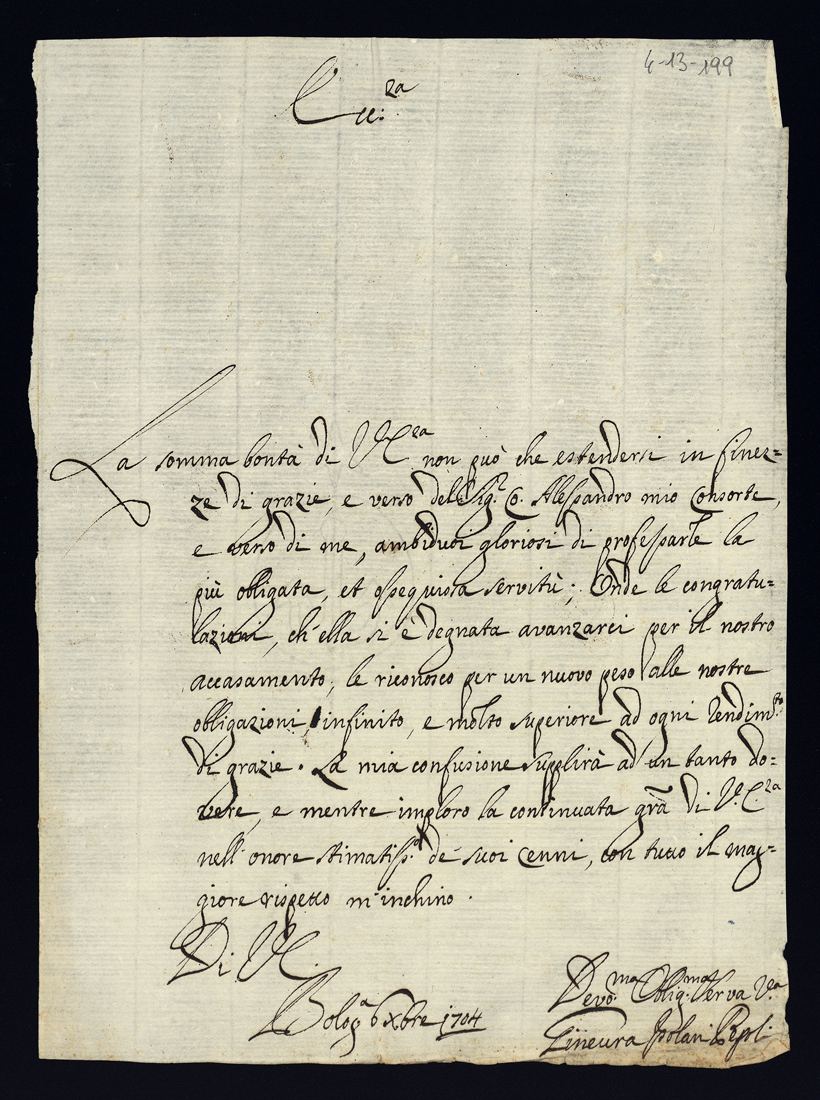 4-13-199
Ecc:za
La somma bontà di V.Ecc.za non può che estendersi in finez=
ze di grazie, e verso del Sig.r C. Alessandro mio Consorte,
e verso di me, ambiduoi gloriosi di professarle la
più obligata, et ossequiosa servitù; Onde le congratu=
lazioni, ch'ella si è degnata avanzarci per il nostro
accasamento, le riconosco per un nuovo peso alle nostre
obligazioni, infinito, e molto superiore ad ogni rendim.to
di grazie. La mia confusione supplirà ad un tanto do=
vere, e mentre imploro la continuata gr̃a di V.E.za
nell'onore stimatiss.o de' suoi Cenni, con tutto il mag=
giore rispetto m'inchino.
Di V.E.
Bolog.a 6 Xbre 1704
Devo.ma Oblig.ma Serva V.ra
Gineura Isolani Pepoli